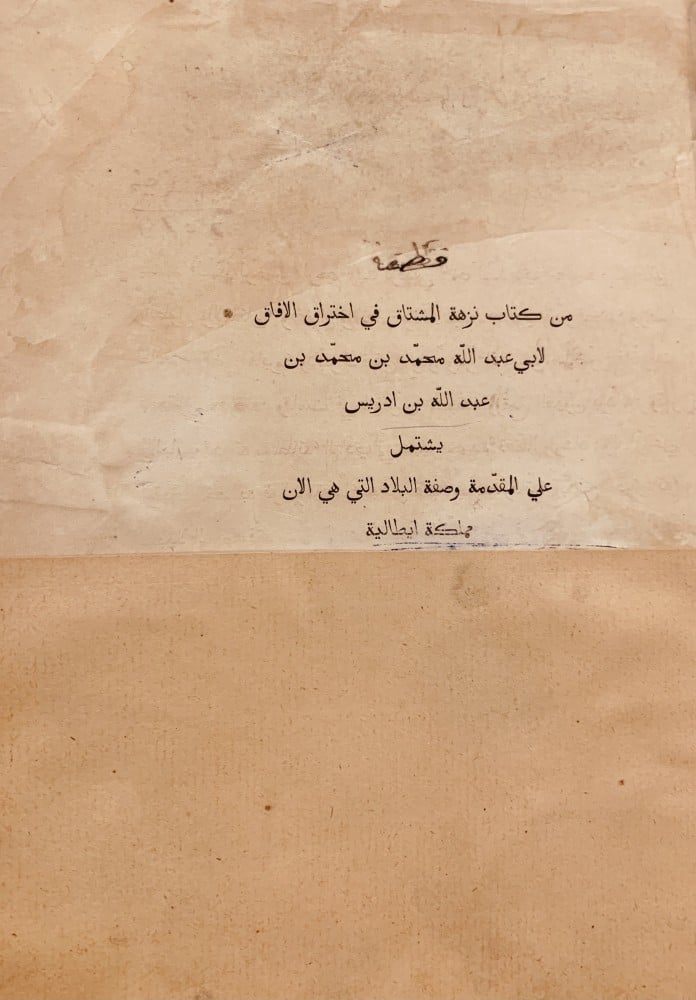 قطعة
من كتاب نزهة المشتاق في اختراق الافاق
لابي عبد اللّه محمّد بن محمّد بن
عبد اللّه بن ادريس
يشتمل
علي المقدّمة وصفة البلاد التي هي الان
مملكة ايطالية